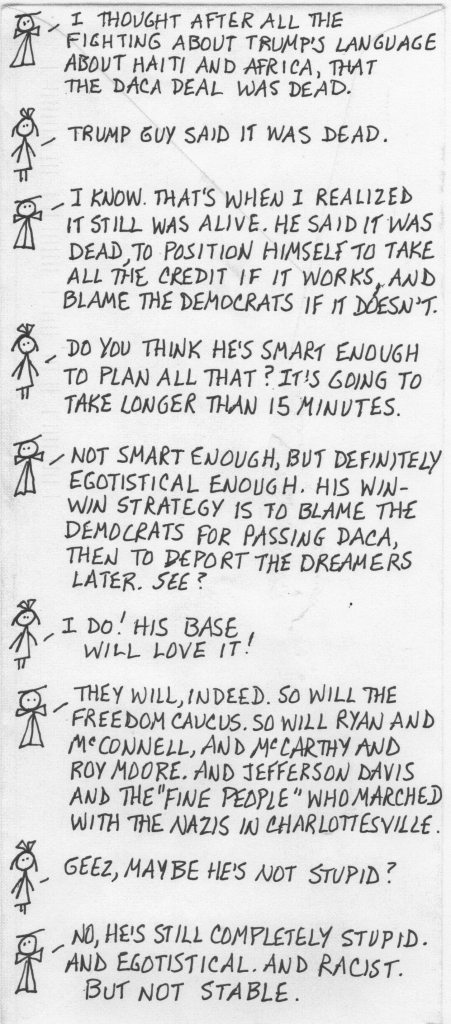 I THOUGHT AFTER ALL THE
FIGHTING ABOUT TRUMP'S LANGUAGE
ABOUT HAITI AND AFRICA, THAT
THE DACA DEAL WAS DEAD.
TRUMP GUY SAID IT WAS DEAD.
I KNOW. THAT'S WHEN I REALIZED
IT STILL WAS ALIVE. HE SAID IT WAS
DEAD, TO POSITION HIMSELF TO TAKE
ALL THE CREDIT IF IT WORKS, AND
BLAME THE DEMOCRATS IF IT DOESN'T.
DO YOU THINK HE'S SMART ENOUGH
TO PLAN ALL THAT? IT'S GOING TO
TAKE LONGER THAN 15 MINUTES.
NOT SMART ENOUGH, BUT DEFINITELY
EGOTISTICAL ENOUGH. HIS WIN-
WIN STRATEGY IS TO BLAME THE
DEMOCRATS FOR PASSING DACA,
THEN TO DEPORT THE DREAMERS
LATER. SEE?
I DO! HIS BASE
WILL LOVE IT!
THEY WILL, INDEED. SO WILL THE
FREEDOM CAUCUS. SO WILL RYAN AND
McCONNELL, AND McCARTHY AND
ROY MOORE. AND JEFFERSON DAVIS
AND THE "FINE PEOPLE" WHO MARCHED
WITH THE NAZIS IN CHARLOTTESVILLE.
GEEZ, MAYBE HE'S NOT STUPID?
NO, HE'S STILL COMPLETELY STUPID.
AND EGOTISTICAL. AND RACIST.
BUT NOT STABLE.